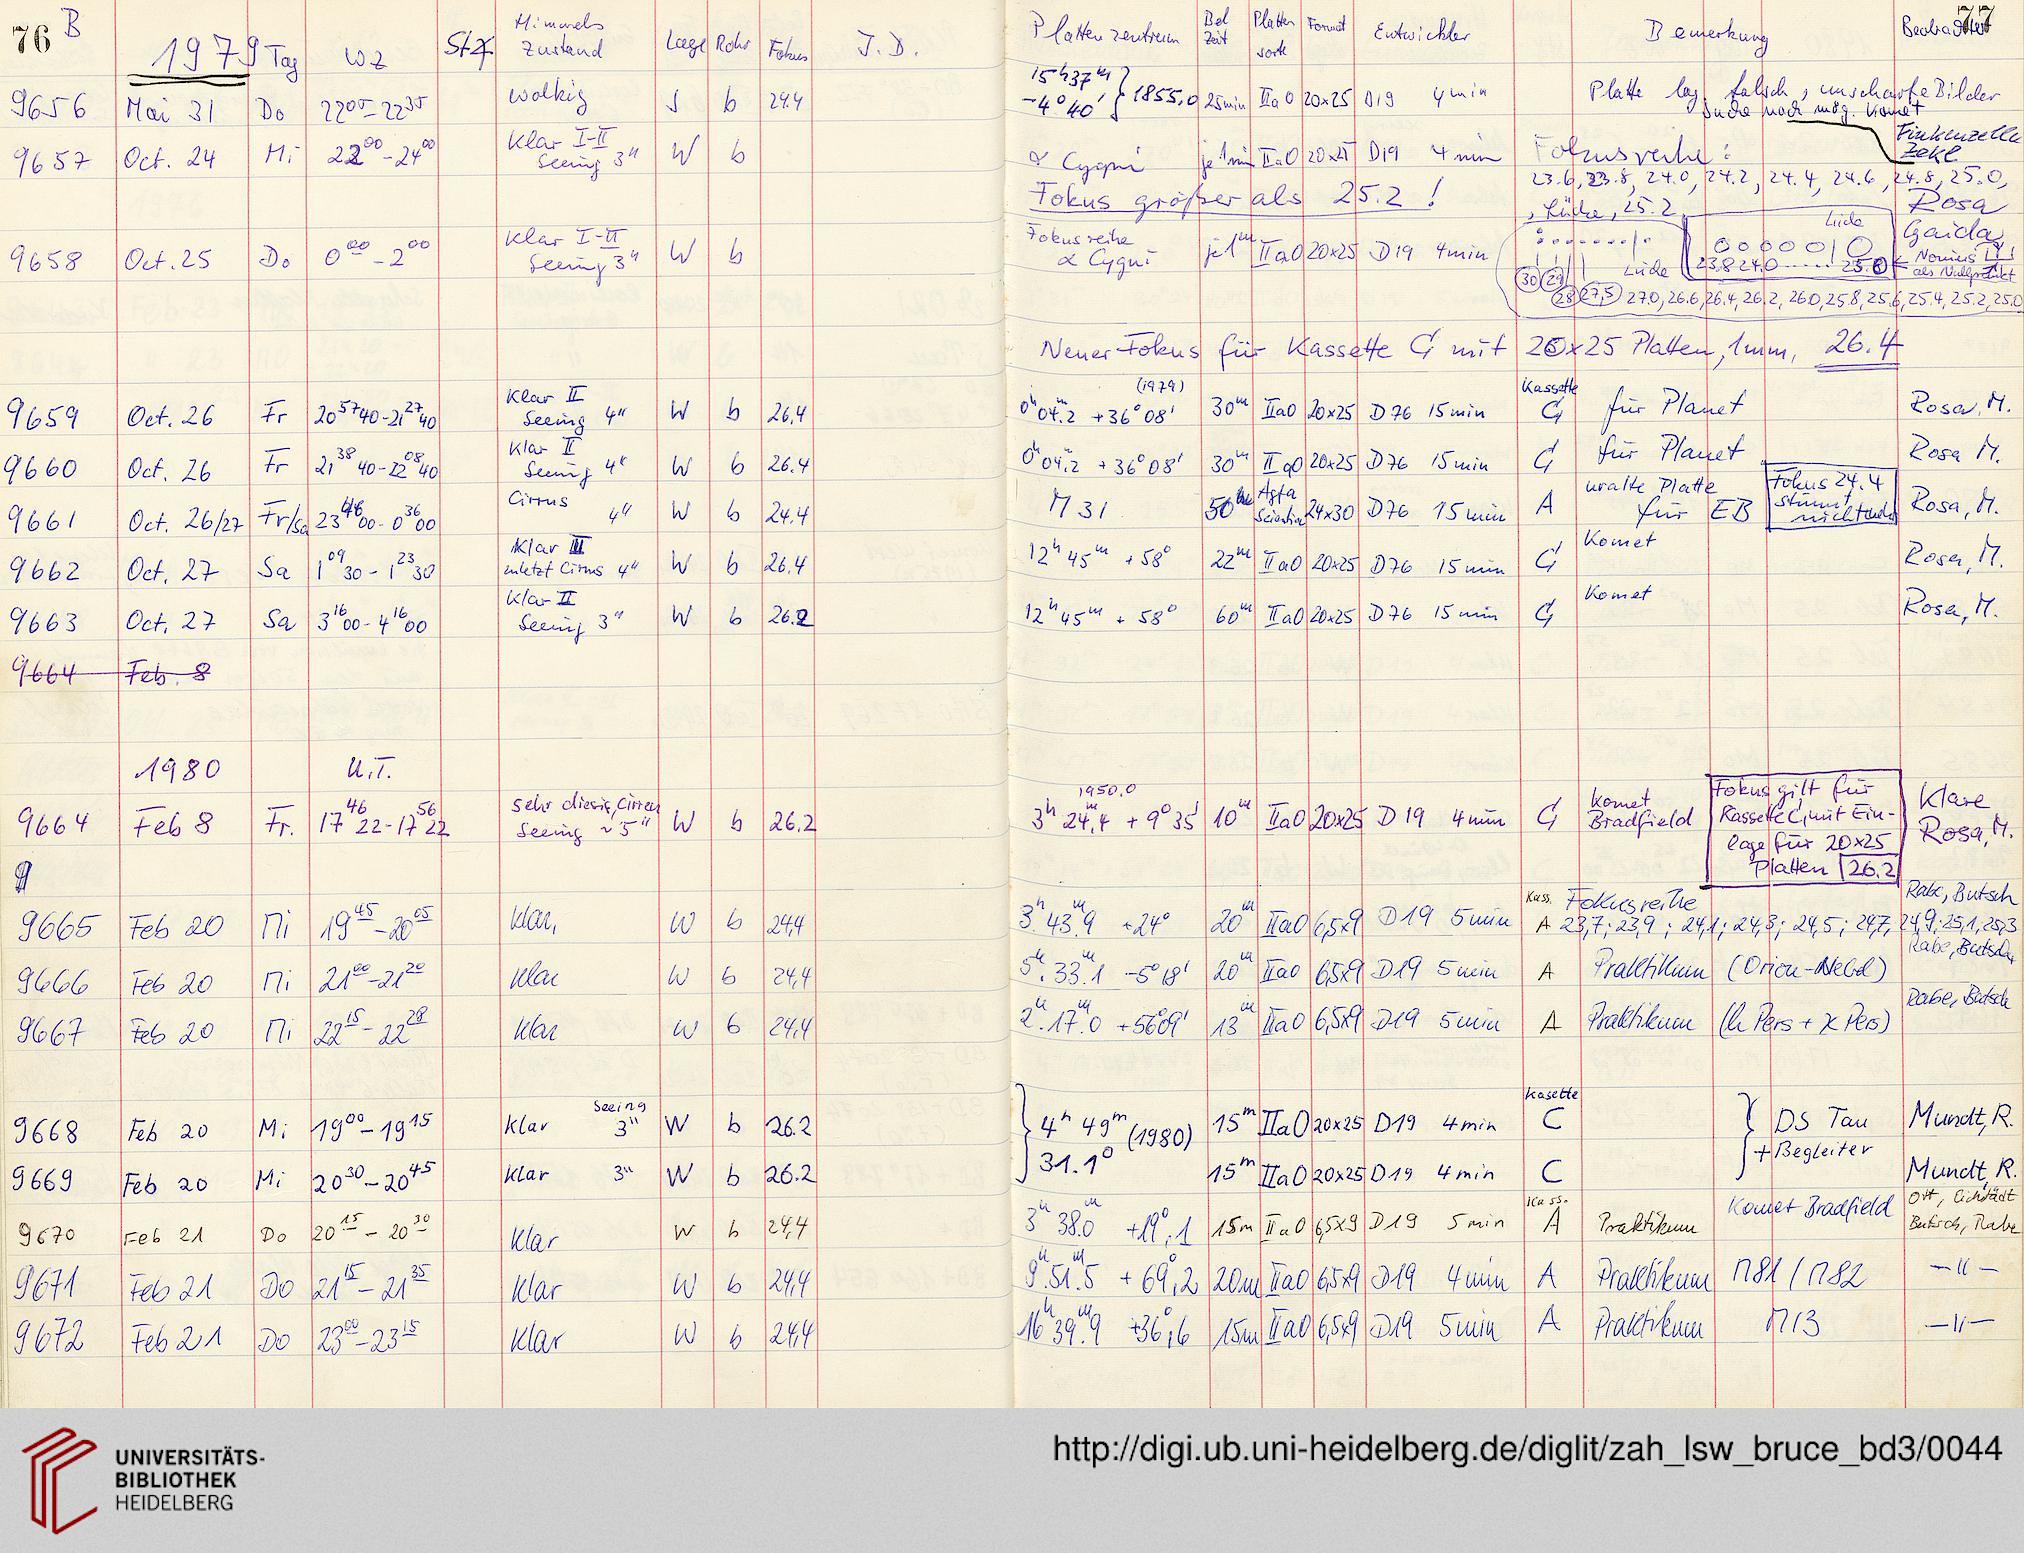 76 B
77
1979 Tag WZ Stz Himmels Zustand Lage Rohr Fokus J.D. Plattenzentrum Bel Zeit Platten sorte Format Entwickler Bemerkung Beobachter
9656 Mai 31 Do 22 05 - 22 35 wolkig J b 24.4 15h 37m -4° 40' } 1855.0 25min IIaO 20x25 D19 4min Platte lag falsch, unscharfe Bilder
Suche nach mög. Komet
Finkenzeller
Zekl
9657 Oct. 24 Mi 22 00 - 24 00 Klar I-II Seeing 3" W b α Cygni je 1min IIaO 20x25 D19 4min Fokusreihe:
23.6, 23.8, 24.0, 24.2, 24.4, 24.6, 24.8, 25.0,
Fokus größer als 25.2 ! , Lücke, 25.2 Rosa
9658 Oct. 25 Do 0 00 - 2 00 Klar I-II Seeing 3" W b Fokusreihe α Cygni je 1m IIaO 20x25 D19 4min Lücke Gaida
Lücke 23.8 24.0 ..... 25.6 ← Nonius als Nullpunkt
30 29
28 27,5 27.0, 26.6, 26.4, 26.2, 26.0, 25.8, 25.6, 25.4, 25.2, 25.0
Neuer Fokus für Kassette C mit 20x25 Platten, 1mm, 26.4
9659 Oct. 26 Fr 20 57 40 - 21 27 40 Klar II Seeing 4" W b 26.4 (1979) 0h 04.m2 +36° 08' 30m IIaO 20x25 D76 15min Kassette C für Planet Rosa, M.
9660 Oct. 26 Fr 21 38 40 - 22 08 40 Klar II Seeing 4" W b 26.4 0h 04.m2 +36° 08' 30m IIaO 20x25 D76 15min C für Planet Rosa M.
9661 Oct. 26/27 Fr/Sa 23 46 00 - 0 36 00 Cirrus 4" W b 24.4 M 31 50m Agfa Scientia 24x30 D76 15min A uralte Platte für EB Fokus 24.4 stimmt nicht Rosa, M.
9662 Oct. 27 Sa 1 09 30 - 1 23 30 Klar III zuletzt Cirrus 4" W b 26.4 12h 45m +58° 22m IIaO 20x25 D76 15min C Komet Rosa, M.
9663 Oct. 27 Sa 3 16 00 - 4 16 00 Klar II Seeing 3" W b 26.2 12h 45m +58° 60m IIaO 20x25 D76 15min C Komet Rosa, M.
9664 Feb. 8
1980 U.T.
9664 Feb 8 Fr. 17 46 22 - 17 56 22 sehr diesig, Cirren Seeing ~5" W b 26.2 1950.0 3h 24.m4 +9° 35' 10m IIaO 20x25 D19 4min C Komet Bradfield Fokus gilt für Kassette C, mit Einlage für 20x25 Platten 26.2 Klare Rosa, M.
9665 Feb 20 Mi 19 45 - 20 05 klar, W b 24,4 3h 43.m9 +24° 20m IIaO 6,5x9 D19 5min Kass. A Fokusreihe 23,7; 23,9; 24,1; 24,3; 24,5; 24,7, 24,9; 25,1, 25,3 Rabe, Butsch
9666 Feb 20 Mi 21 00 - 21 20 klar W b 24,4 5h.33.m1 -5° 18' 20m IIaO 6,5x9 D19 5min A Praktikum (Orion-Nebel) Rabe, Butsch
9667 Feb 20 Mi 22 15 - 22 28 klar W b 24,4 2h.17.m0 +56°09' 13m IIaO 6,5x9 D19 5min A Praktikum (h Pers + χ Pers) Rabe, Butsch
9668 Feb 20 Mi 19 00 - 19 15 klar Seeing 3" W b 26.2 4h 49m (1980) 15m IIaO 20x25 D19 4min Kasette C DS Tau Mundt, R.
9669 Feb 20 Mi 20 30 - 20 45 klar 3" W b 26.2 31.1° 15m IIaO 20x25 D19 4min C + Begleiter Mundt, R.
9670 Feb 21 Do 20 15 - 20 30 klar W b 24,4 3h 38.m0 +19°,1 15m IIaO 6,5x9 D19 5min Kass. A Praktikum Komet Bradfield Ott, Eichstädt Butsch, Rabe
9671 Feb 21 Do 21 15 - 21 35 klar W b 24,4 9h.51.m5 +69°,2 20m IIaO 6,5x9 D19 4min A Praktikum M81 / M82 — " —
9672 Feb 21 Do 23 00 - 23 15 klar W b 24,4 16h 39.m9 +36°,6 15m IIaO 6,5x9 D19 5min A Praktikum M13 — " —
UNIVERSITÄTS-
BIBLIOTHEK
HEIDELBERG
http://digi.ub.uni-heidelberg.de/diglit/zah_lsw_bruce_bd3/0044